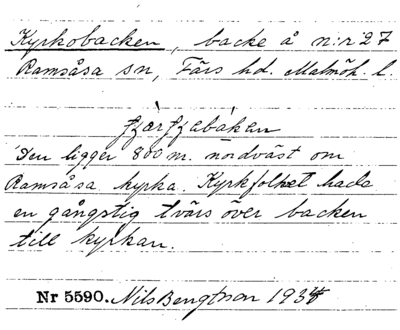 Kyrkobacken, backe å n:r 27
Ramsåsa sn, Färs hd. Malmöh. l.
Den ligger 800 m. nordväst om
Ramsåsa kyrka. Kyrkfolket hade
en gångstig tvärs över backen
till kyrkan.
Nr 5590. Nils Bengtson 1934